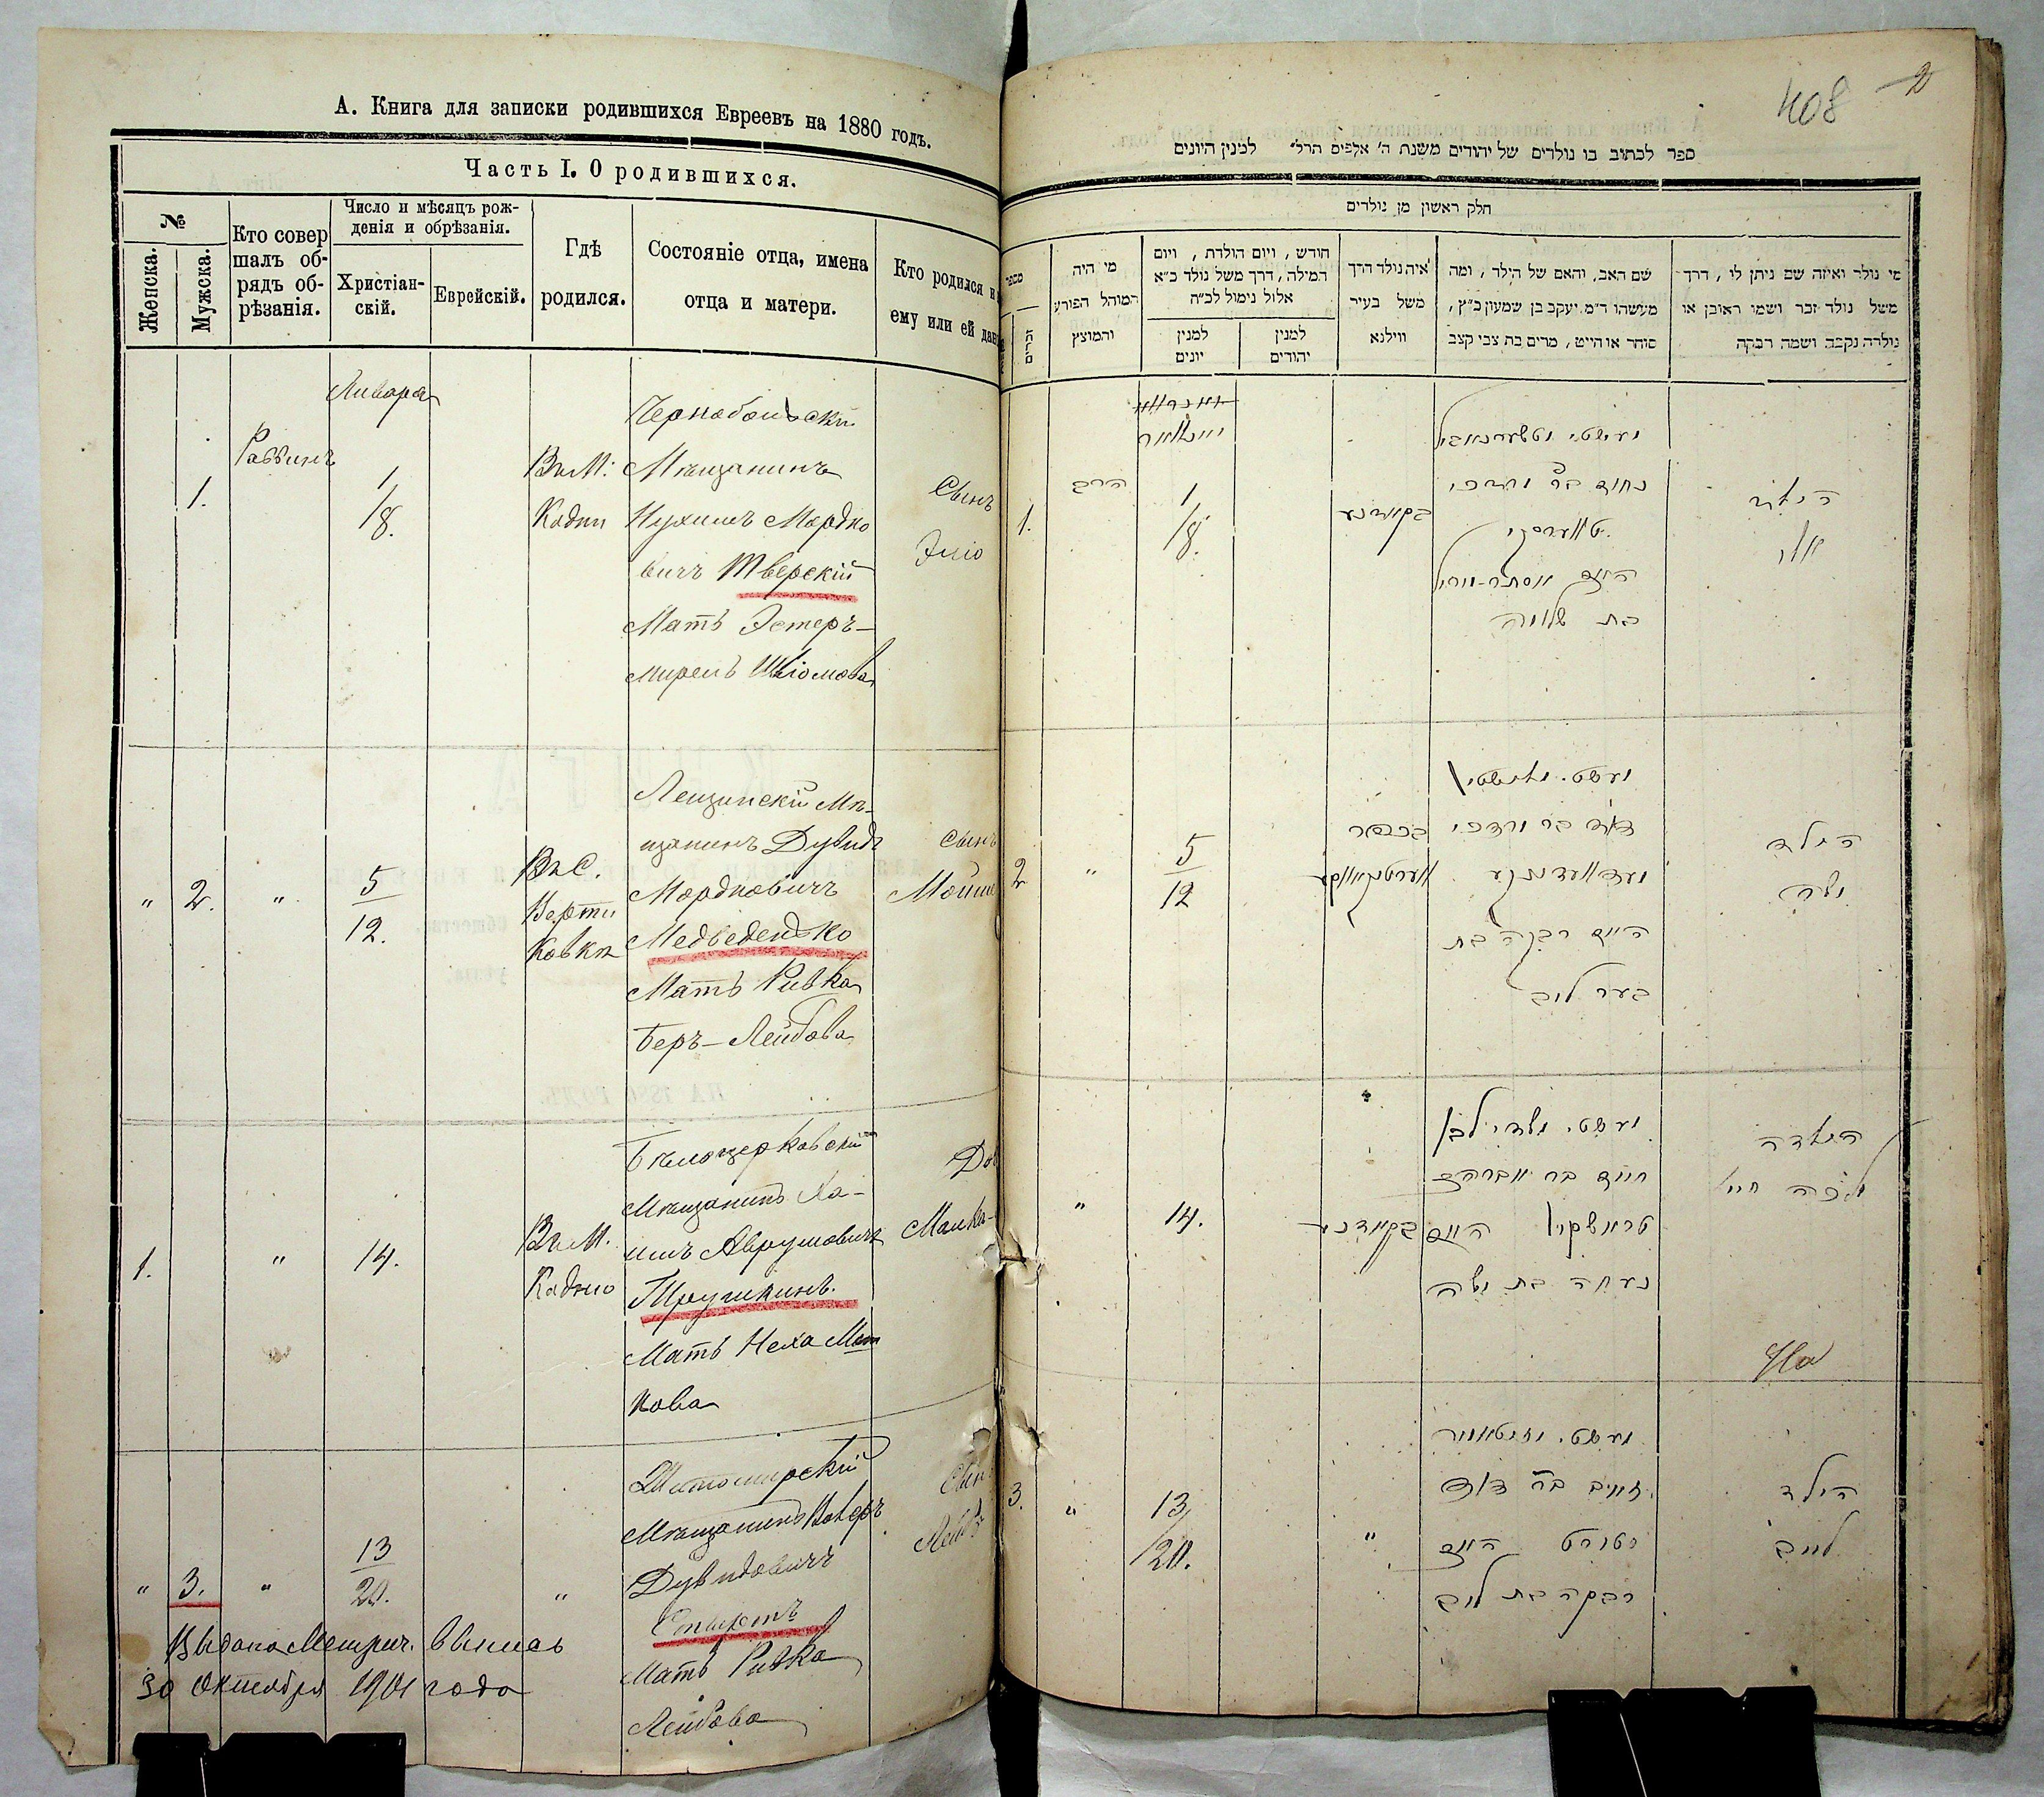 А. Книга для записки родившихся Евреевъ на 1880 годъ.
Часть I. О родившихся.
№
Женска.
Мужска.
Кто совер
шалъ об-
рядъ об-
рѣзанія.
Число и мѣсяцъ рож-
денія и обрѣзанія.
Христіан-
скій.
Еврейскій.
Гдѣ
родился.
Состояніе отца, имена
отца и матери.
Кто родился и
ему или ей дан
Января
1.
Раввинъ
1
/8.
Въ М:
Кодни
Чернобыльскій
Мѣщанинъ
Нухимъ Мордко
вичъ Тверскій
Мать Эстеръ-
мирель Шліомова
Сынъ
Эліо
" 2. "
5
12.
Въ С.
Верти
Ковкѣ
Лещинскій Мѣ-
щанинъ Дувидъ
Мордковичъ
Медведенько
Мать Ривка
Беръ-Лейбова
Сынъ
Мойше
1. " 14.
Въ М.
Кодню
Бѣлоцерковскій
Мѣщанинъ Ха-
имъ Аврумовичъ
Трушкинъ.
Мать Неха Мош
кова
Доч
Малка-
" 3. "
13
20.
"
Житомирскій
Мѣщанинъ
Дувидовичъ
Мать Ривка
Лейбова
Сын
Лейбъ
Выдана Метрич. выпись
30 Октября 1901 года
408
2
ספר לכתוב בו נולדים של יהודים משנת ה' אלפים תר"ל למנין היונים
חלק ראשון מן נולדים
מספר
זכרים
מי היה
המוהל הפורע
והמוצץ
חודש, ויום הולדת, ויום
המילה, דרך משל נולד כ״א
אלול נימול לכ״ח
למנין
יונים
למנין
יהודים
איה נולד דרך
משל בעיר
ווילנא
שם האב, והאם של הילד, ומה
מעשהו ד״מ יעקב בן שמעון כ״ץ,
סוחר או הייט, מרים בת צבי קצב
מי נולד ואיזה שם ניתן לו, דרך
משל נולד זכר ושמו ראובן או
נולדה נקבה ושמה רבקה
יאנוואר
1.
הרב
1
/8.
בקאדנע
נחום בר מרדכי
טווערסקי
האם אסתר-מירל
בת שלמה
הילד
2
"
5
12
דוד בר מרדכי
מעדוועדענקע
האם רבקה בת
בער לייב
הילד
משה
"
14.
בקאדנע
חיים בר אברהם
טראשקין האם
נעחה בת משה
הילדה
מלכה חיי'
3.
"
13
/20.
"
בר דוד
האם
רבקה בת לייב
הילד
לייב